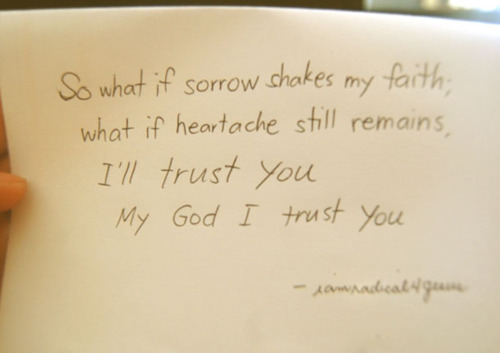 So what if sorrow shakes my faith;
what if heartache still remains,
I'll trust you
My God I trust you